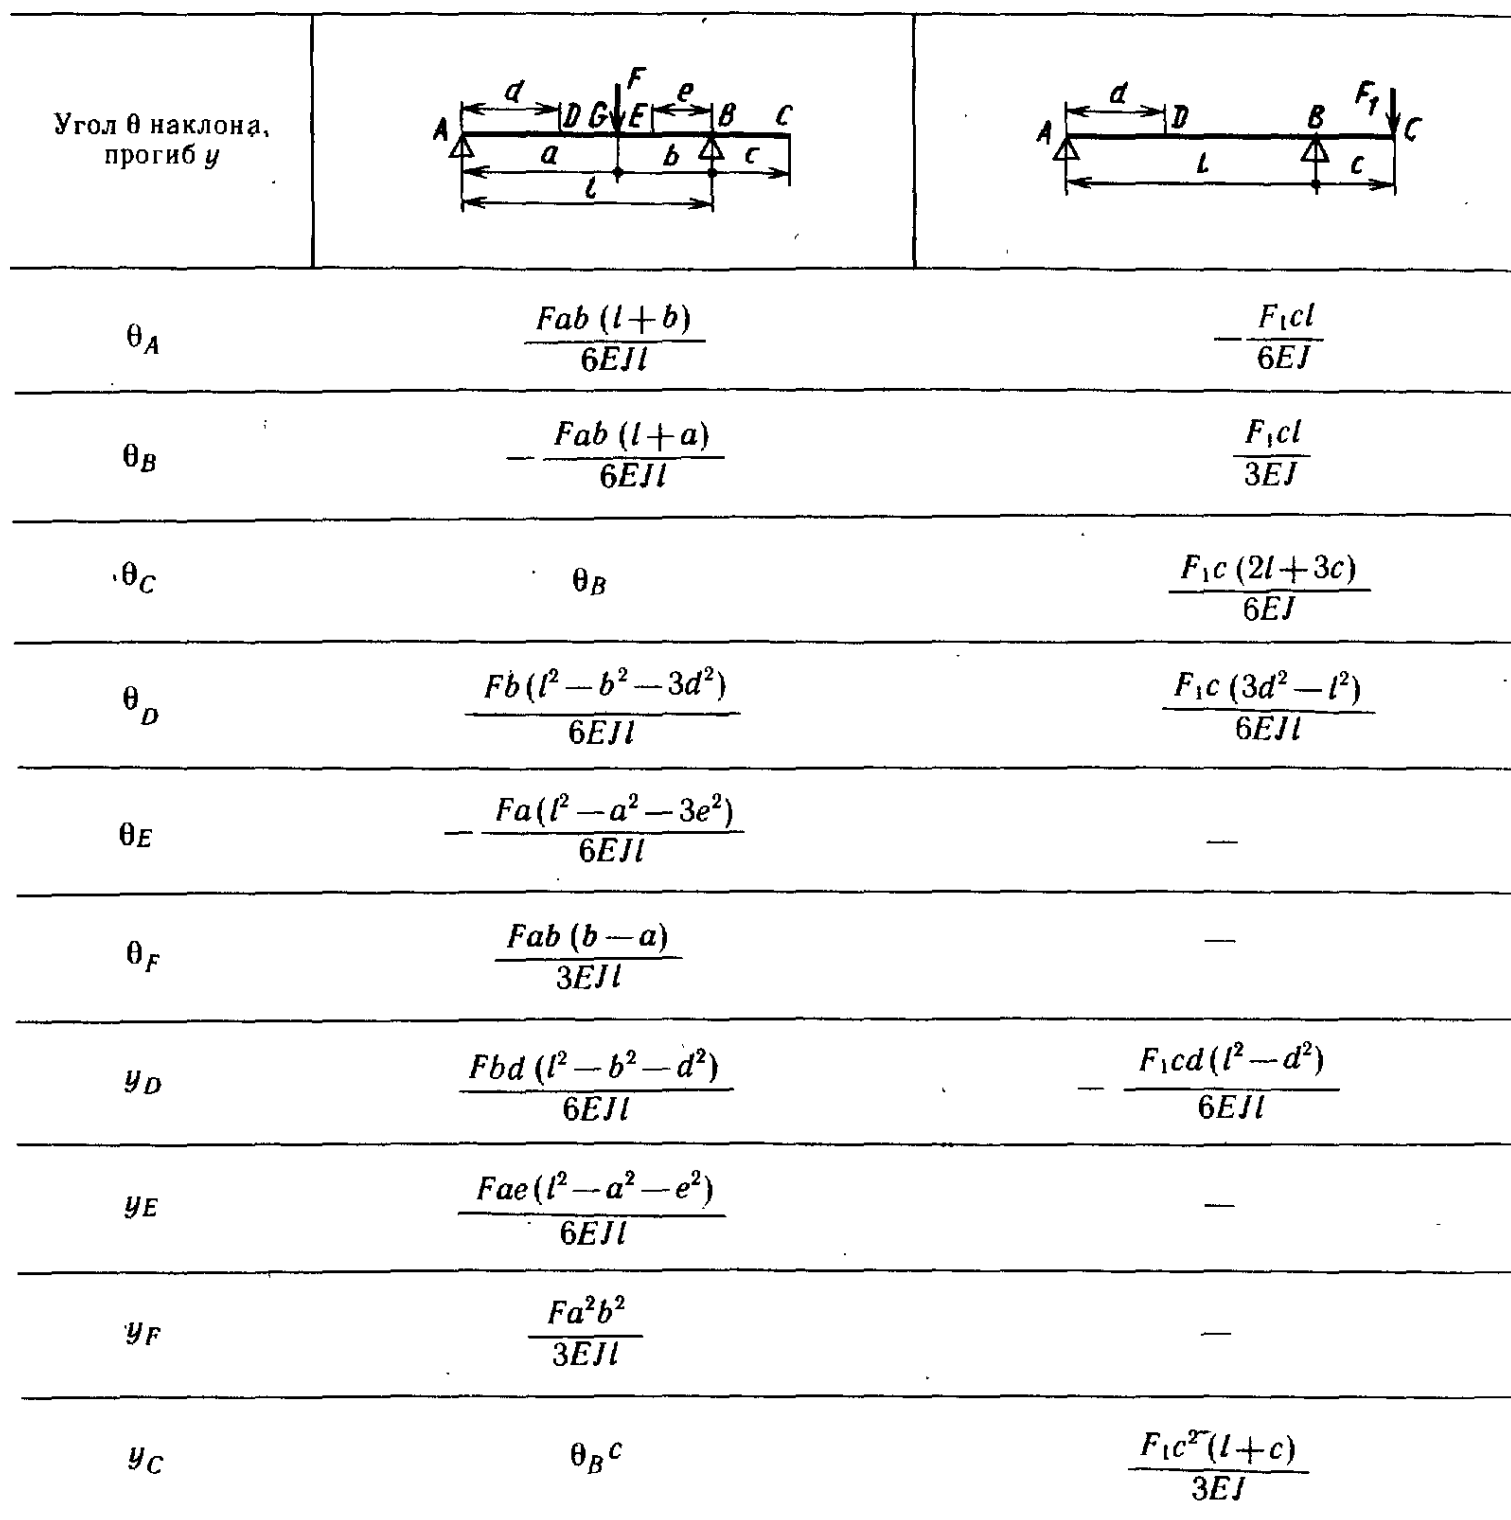 Угол θ наклона,
прогиб y
A d D G F E e B C
a b c
l
A d D B F₁ C
l c
θ_A Fab (l + b) / 6EJl − F₁cl / 6EJ
θ_B − Fab (l + a) / 6EJl F₁cl / 3EJ
θ_C θ_B F₁c (2l + 3c) / 6EJ
θ_D Fb (l² — b² — 3d²) / 6EJl F₁c (3d² — l²) / 6EJl
θ_E — Fa (l² — a² — 3e²) / 6EJl —
θ_F Fab (b — a) / 3EJl —
y_D Fbd (l² — b² — d²) / 6EJl — F₁cd (l² — d²) / 6EJl
y_E Fae (l² — a² — e²) / 6EJl —
y_F Fa²b² / 3EJl —
y_C θ_B c F₁c² (l + c) / 3EJ